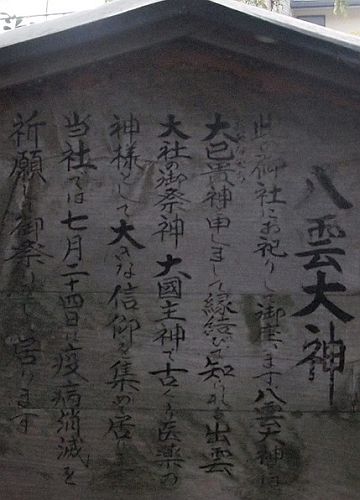 八雲大神
此の御社にお祀りして御座います八雲大神は
大己貴神申しまして縁結びで知られる出雲
大社の御祭神 大國主神で古くより医薬の
神様として大きな信仰を集めて居ります
当社では七月二十四日に疫病消滅を
祈願し御祭りして居ります